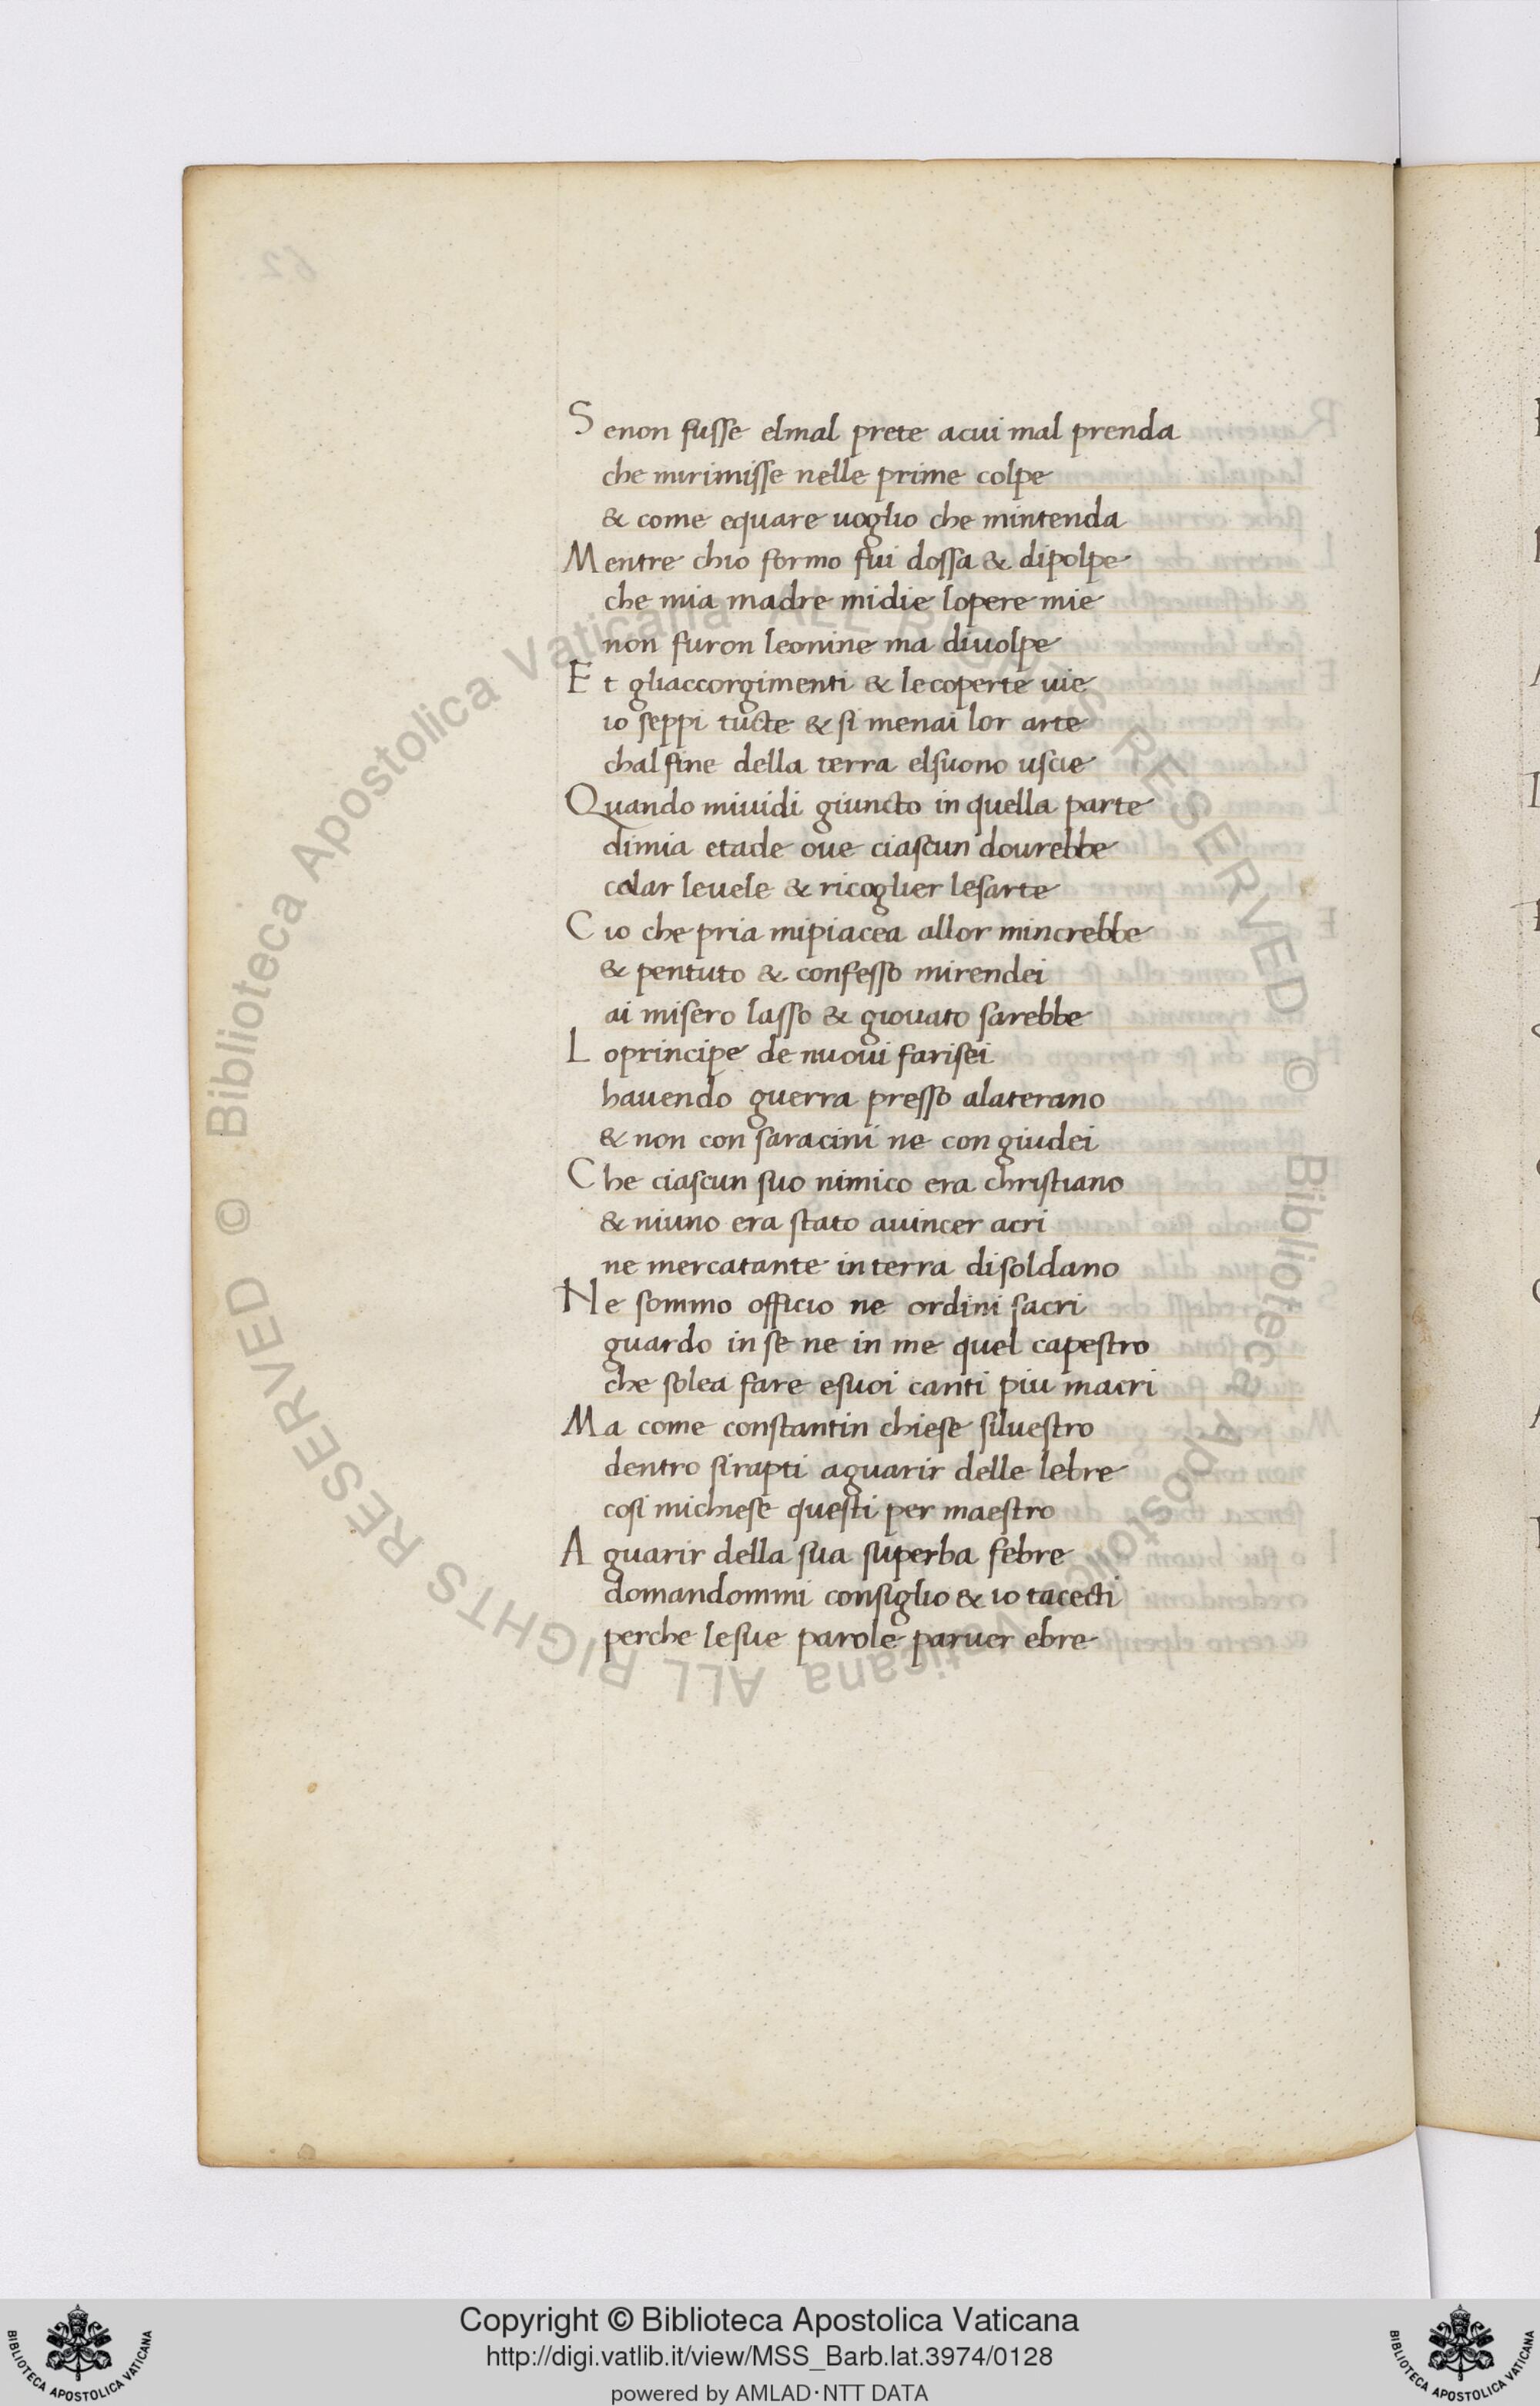 Senon fusse elmal prete acui mal prenda
che mirimisse nelle prime colpe
& come equare uoglio che mintenda
Mentre chio formo fui dossa & dipolpe
che mia madre midie lopere mie
non furon leonine ma diuolpe
Et gliaccorgimenti & lecoperte uie
io seppi tucte & si menai lor arte
chal fine della terra elsuono uscie
Quando miuidi giuncto in quella parte
dimia etade oue ciascun dourebbe
calar leuele & ricoglier lesarte
Cio che pria mipiacea allor mincrebbe
& pentuto & confesso mirendei
ai misero lasso & giouato sarebbe
Loprincipe de nuoui farisei
hauendo guerra presso alaterano
& non con saracini ne con giudei
Che ciascun suo nimico era christiano
& niuno era stato auincer acri
ne mercatante interra disoldano
Ne sommo officio ne ordini sacri
guardo in se ne in me quel capestro
che solea fare esuoi canti piu macri
Ma come constantin chiese siluestro
dentro sirapti aguarir delle lebre
cosi michiese questi per maestro
Aguarir della sua superba febre
domandommi consiglio & io tacecti
perche lesue parole paruer ebre
Copyright © Biblioteca Apostolica Vaticana
http://digi.vatlib.it/view/MSS_Barb.lat.3974/0128
powered by AMLAD·NTT DATA